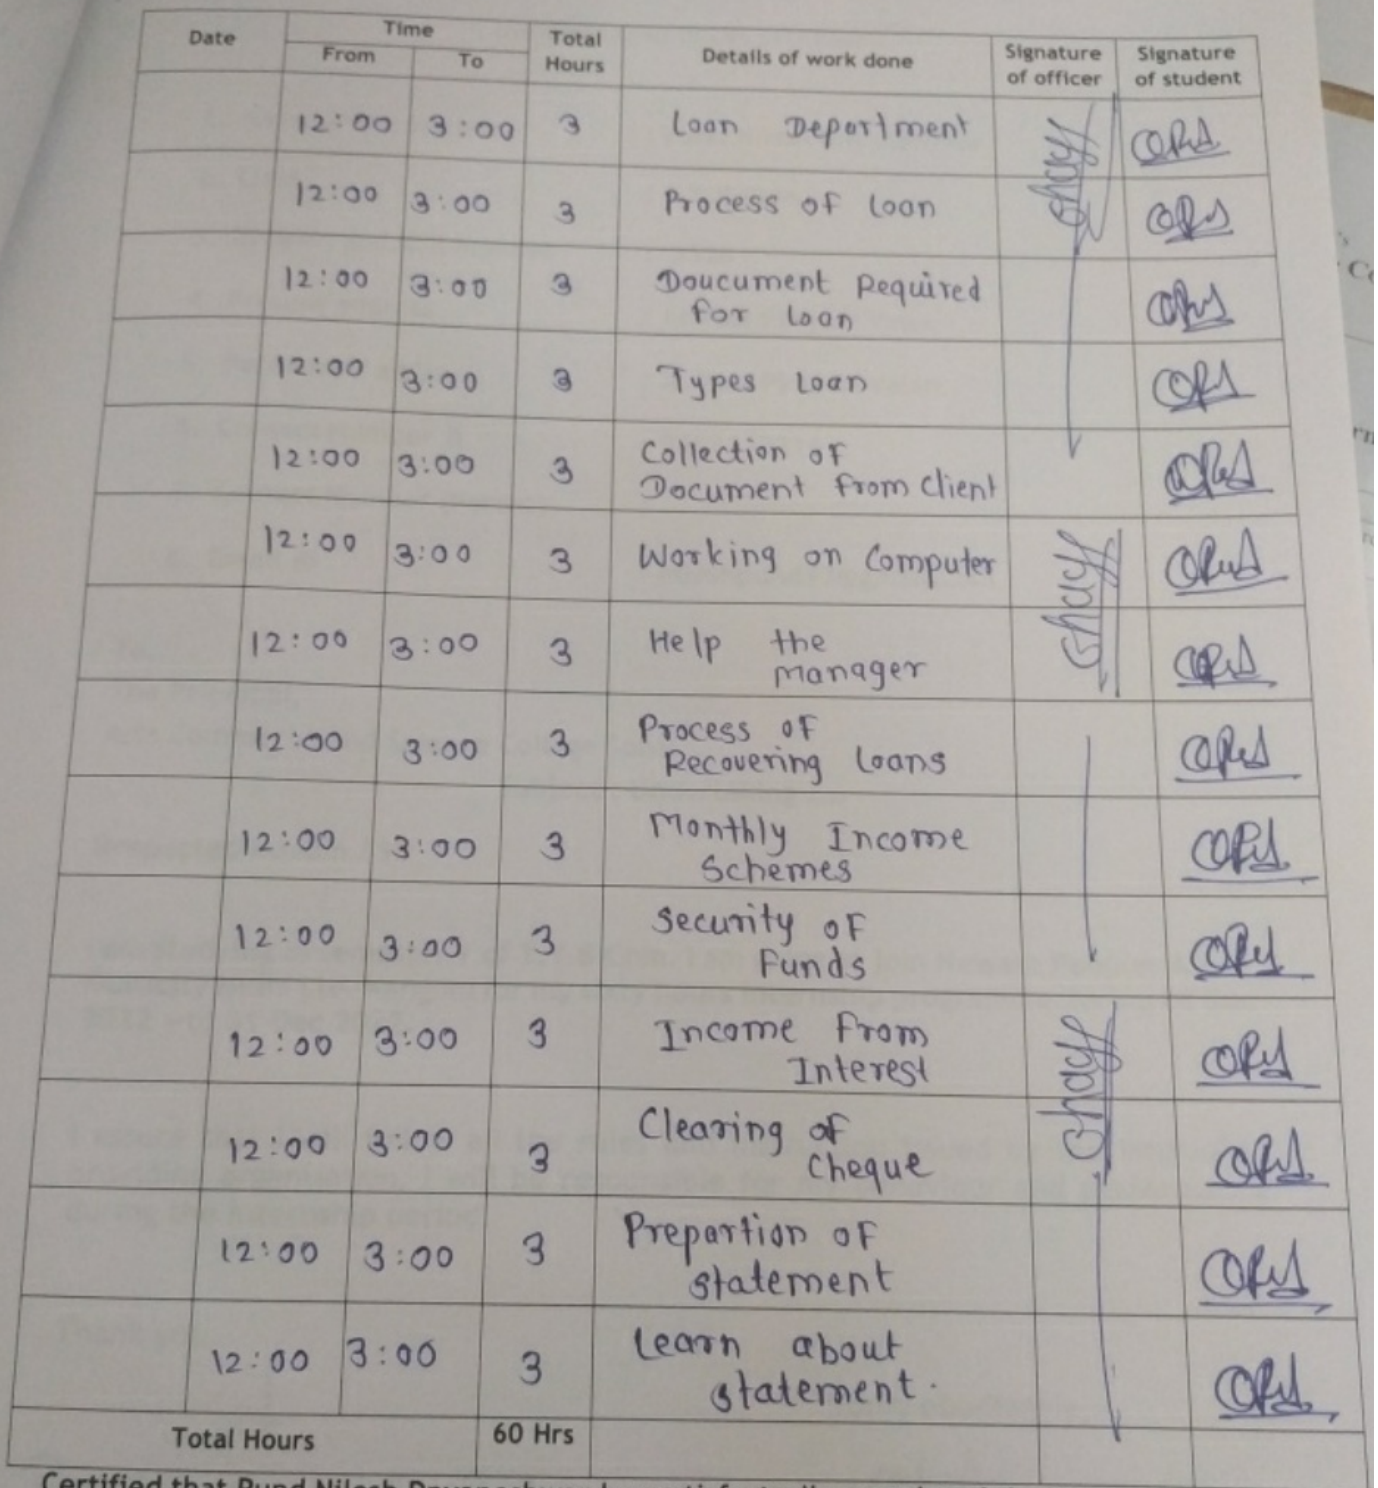 Date Time Total Hours Details of work done Signature of officer Signature of student
From To
12:00 3:00 3 Loan Department
12:00 3:00 3 Process of loan
12:00 3:00 3 Doucument Required
for loan
12:00 3:00 3 Types Loan
12:00 3:00 3 Collection of
Document from client
12:00 3:00 3 Working on Computer
12:00 3:00 3 Help the
manager
12:00 3:00 3 Process of
Recovering Loans
12:00 3:00 3 Monthly Income
Schemes
12:00 3:00 3 Security of
Funds
12:00 3:00 3 Income From
Interest
12:00 3:00 3 Clearing of
Cheque
12:00 3:00 3 Prepartion of
statement
12:00 3:00 3 Learn about
statement.
Total Hours 60 Hrs
Certified that